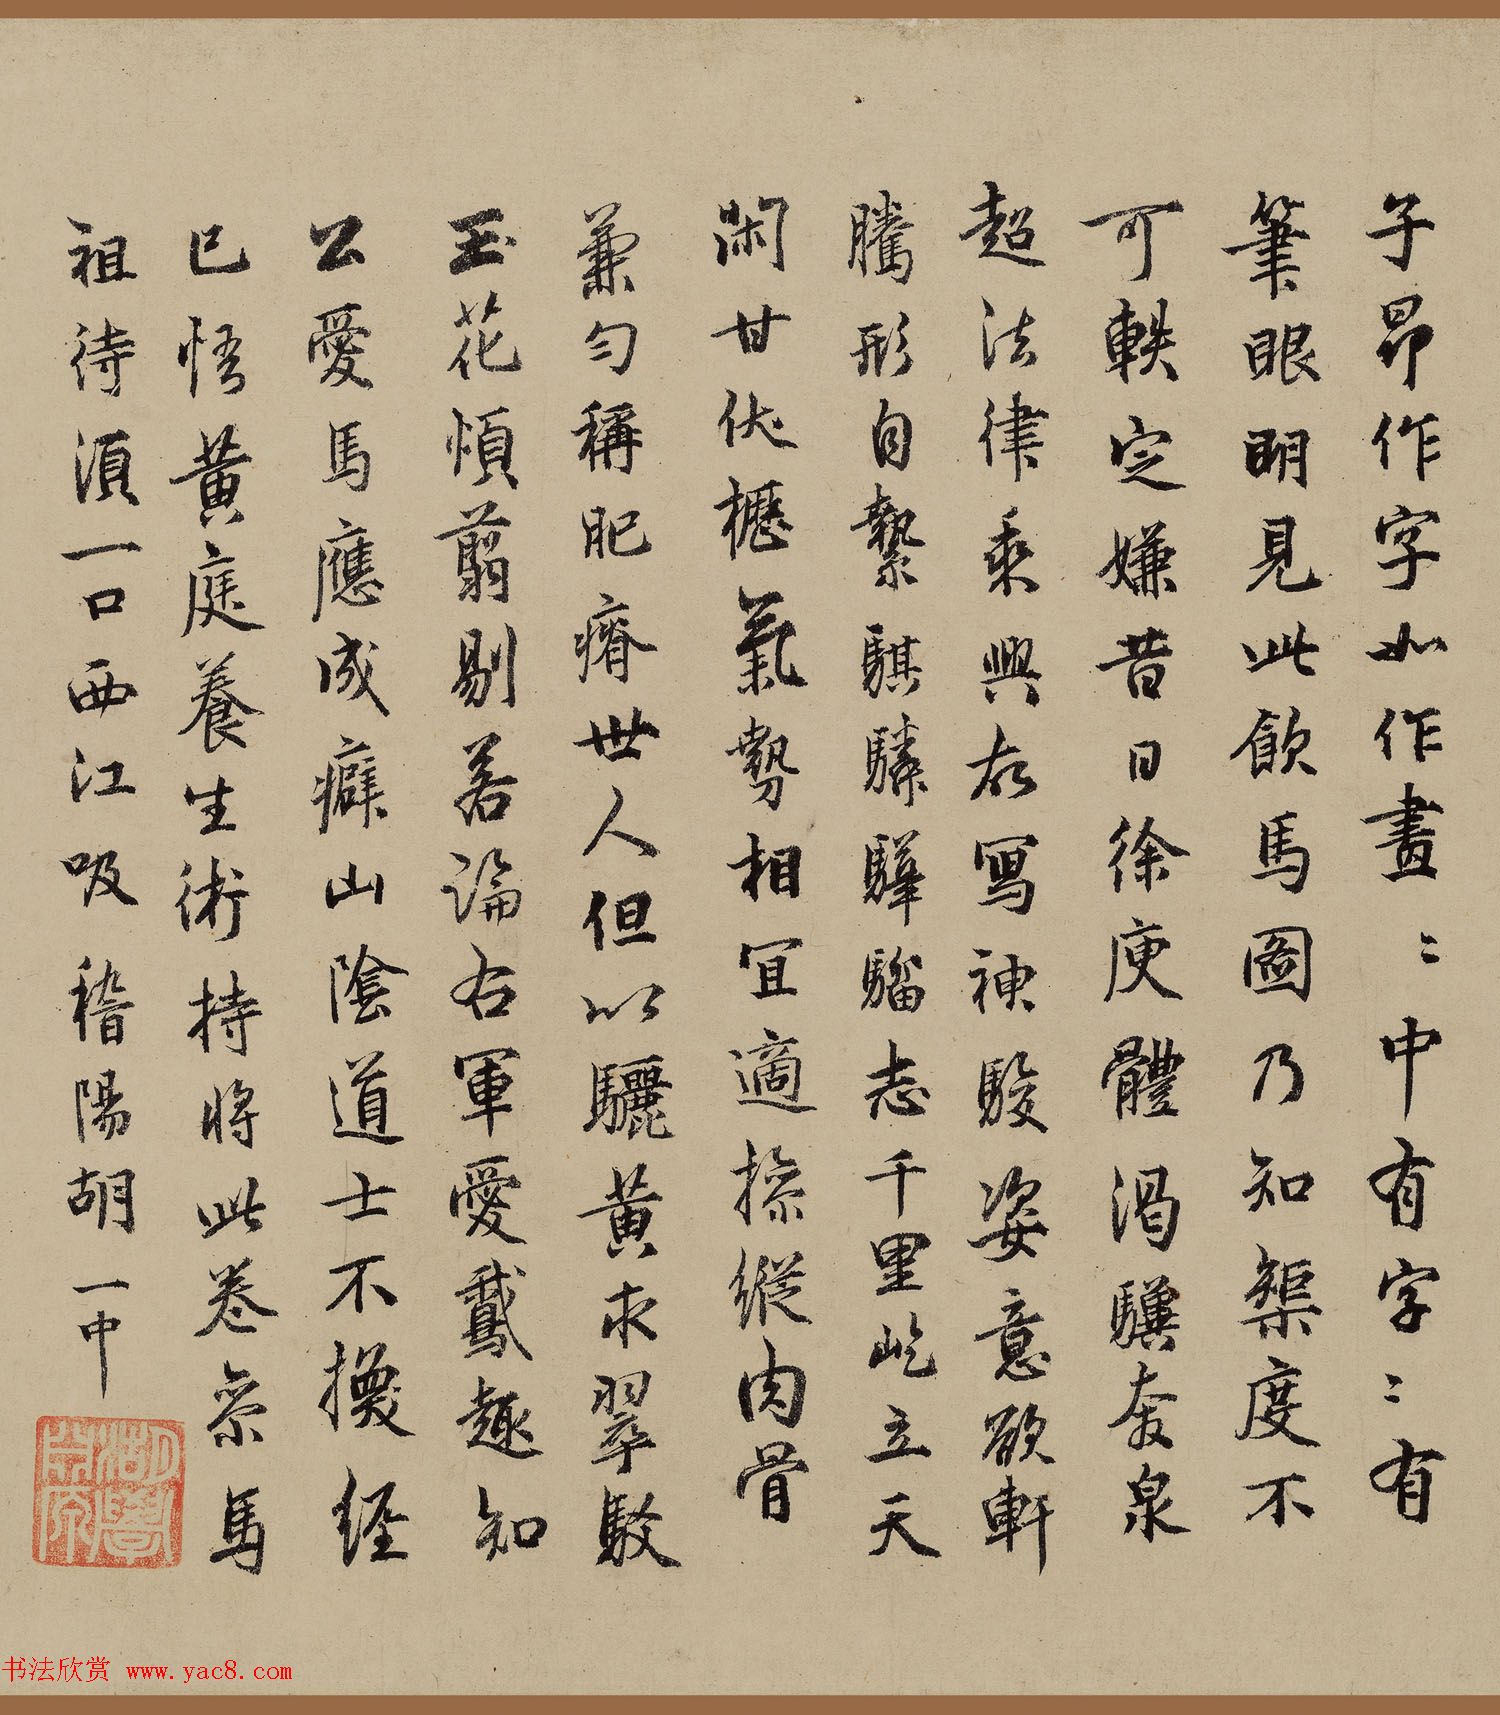 子昂作字如作畫〻中有字〻有
筆眼明見此飲馬圖乃知榘度不
可軼定嫌昔日徐庾體渴驥奔泉
超法律乘興故寫神駿姿意欲軒
騰形自縶騏驎驊騮志千里屹立天
閑甘伏櫪氣勢相宜適操縱肉骨
兼勻稱肥瘠世人但以驪黄求翠駮
玉花煩翦剔若論右軍愛鵞趣知
公愛馬應成癖山陰道士不換經
已悟黄庭養生術持將此卷叅馬
祖待須一口西江吸稽陽胡一中
书法欣赏 www.yac8.com